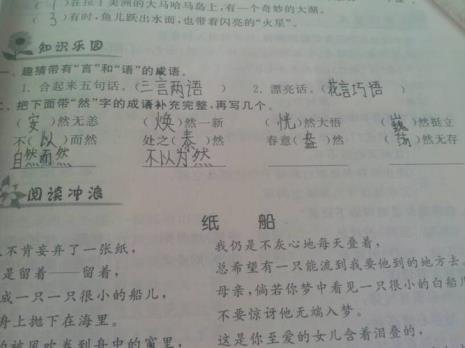 (4)在位于美洲的大马哈马岛上,有一个奇妙的大湖。
(3)有时,鱼儿跃出水面,也带着闪亮的“火星”。
知识乐园
一、趣猜带有“言”和“语”的成语。
1. 合起来五句话。(三言两语) 2. 漂亮话。(花言巧语)
二、把下面带“然”字的成语补充完整,再写几个。
(安)然无恙 (焕)然一新 (恍)然大悟 (巍)然挺立
不(以)而然 处之(泰)然 春意(盎)然 (荡)然无存
自然而然 不以为然
阅读冲浪
纸 船
不肯妄弃了一张纸,
是留着——留着,
成一只一只很小的船儿,
舟上抛下在海里。
被风吹卷到舟中的窗里,
我仍是不灰心地每天叠着,
总希望有一只能流到我要他到的地方去
母亲,倘若你梦中看见一只很小的白船儿
不要惊讶他无端入梦。
这是你至爱的女儿含着泪叠的,